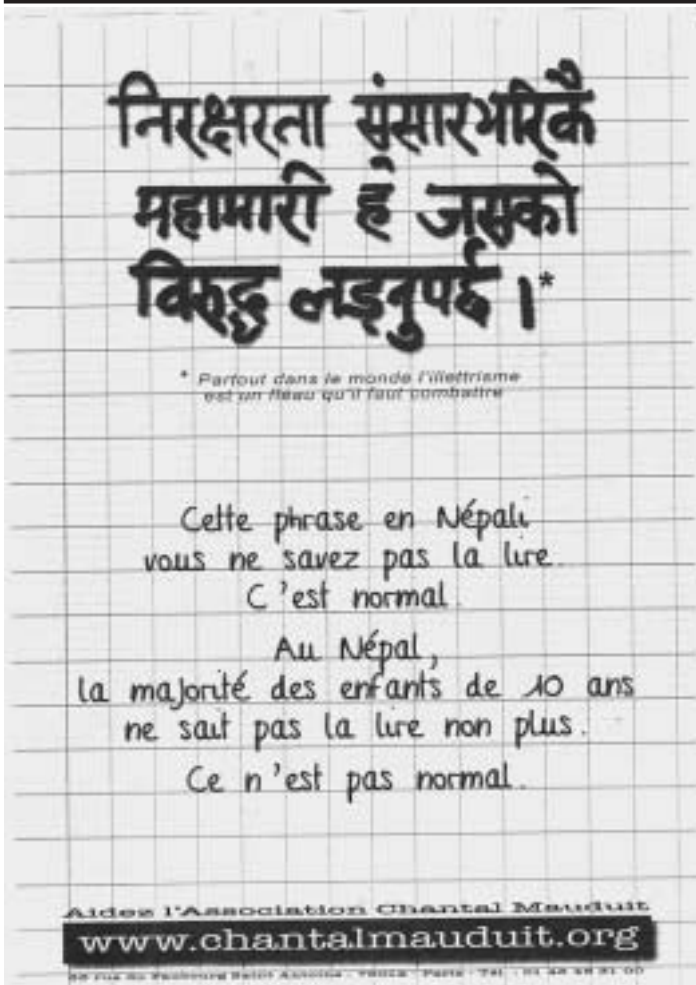 निरक्षरता संसारभरिकै
महामारी हो जसको
विरुद्ध लड्नुपर्छ ।*
* Partout dans le monde l'illettrisme
est un fléau qu'il faut combattre
Cette phrase en Népali
vous ne savez pas la lire.
C'est normal.
Au Népal,
la majorité des enfants de 10 ans
ne sait pas la lire non plus.
Ce n'est pas normal.
Aidez l'Association Chantal Mauduit
www.chantalmauduit.org
rue du Faubourg Saint Antoine - 75012 - Paris - Tél. : 01